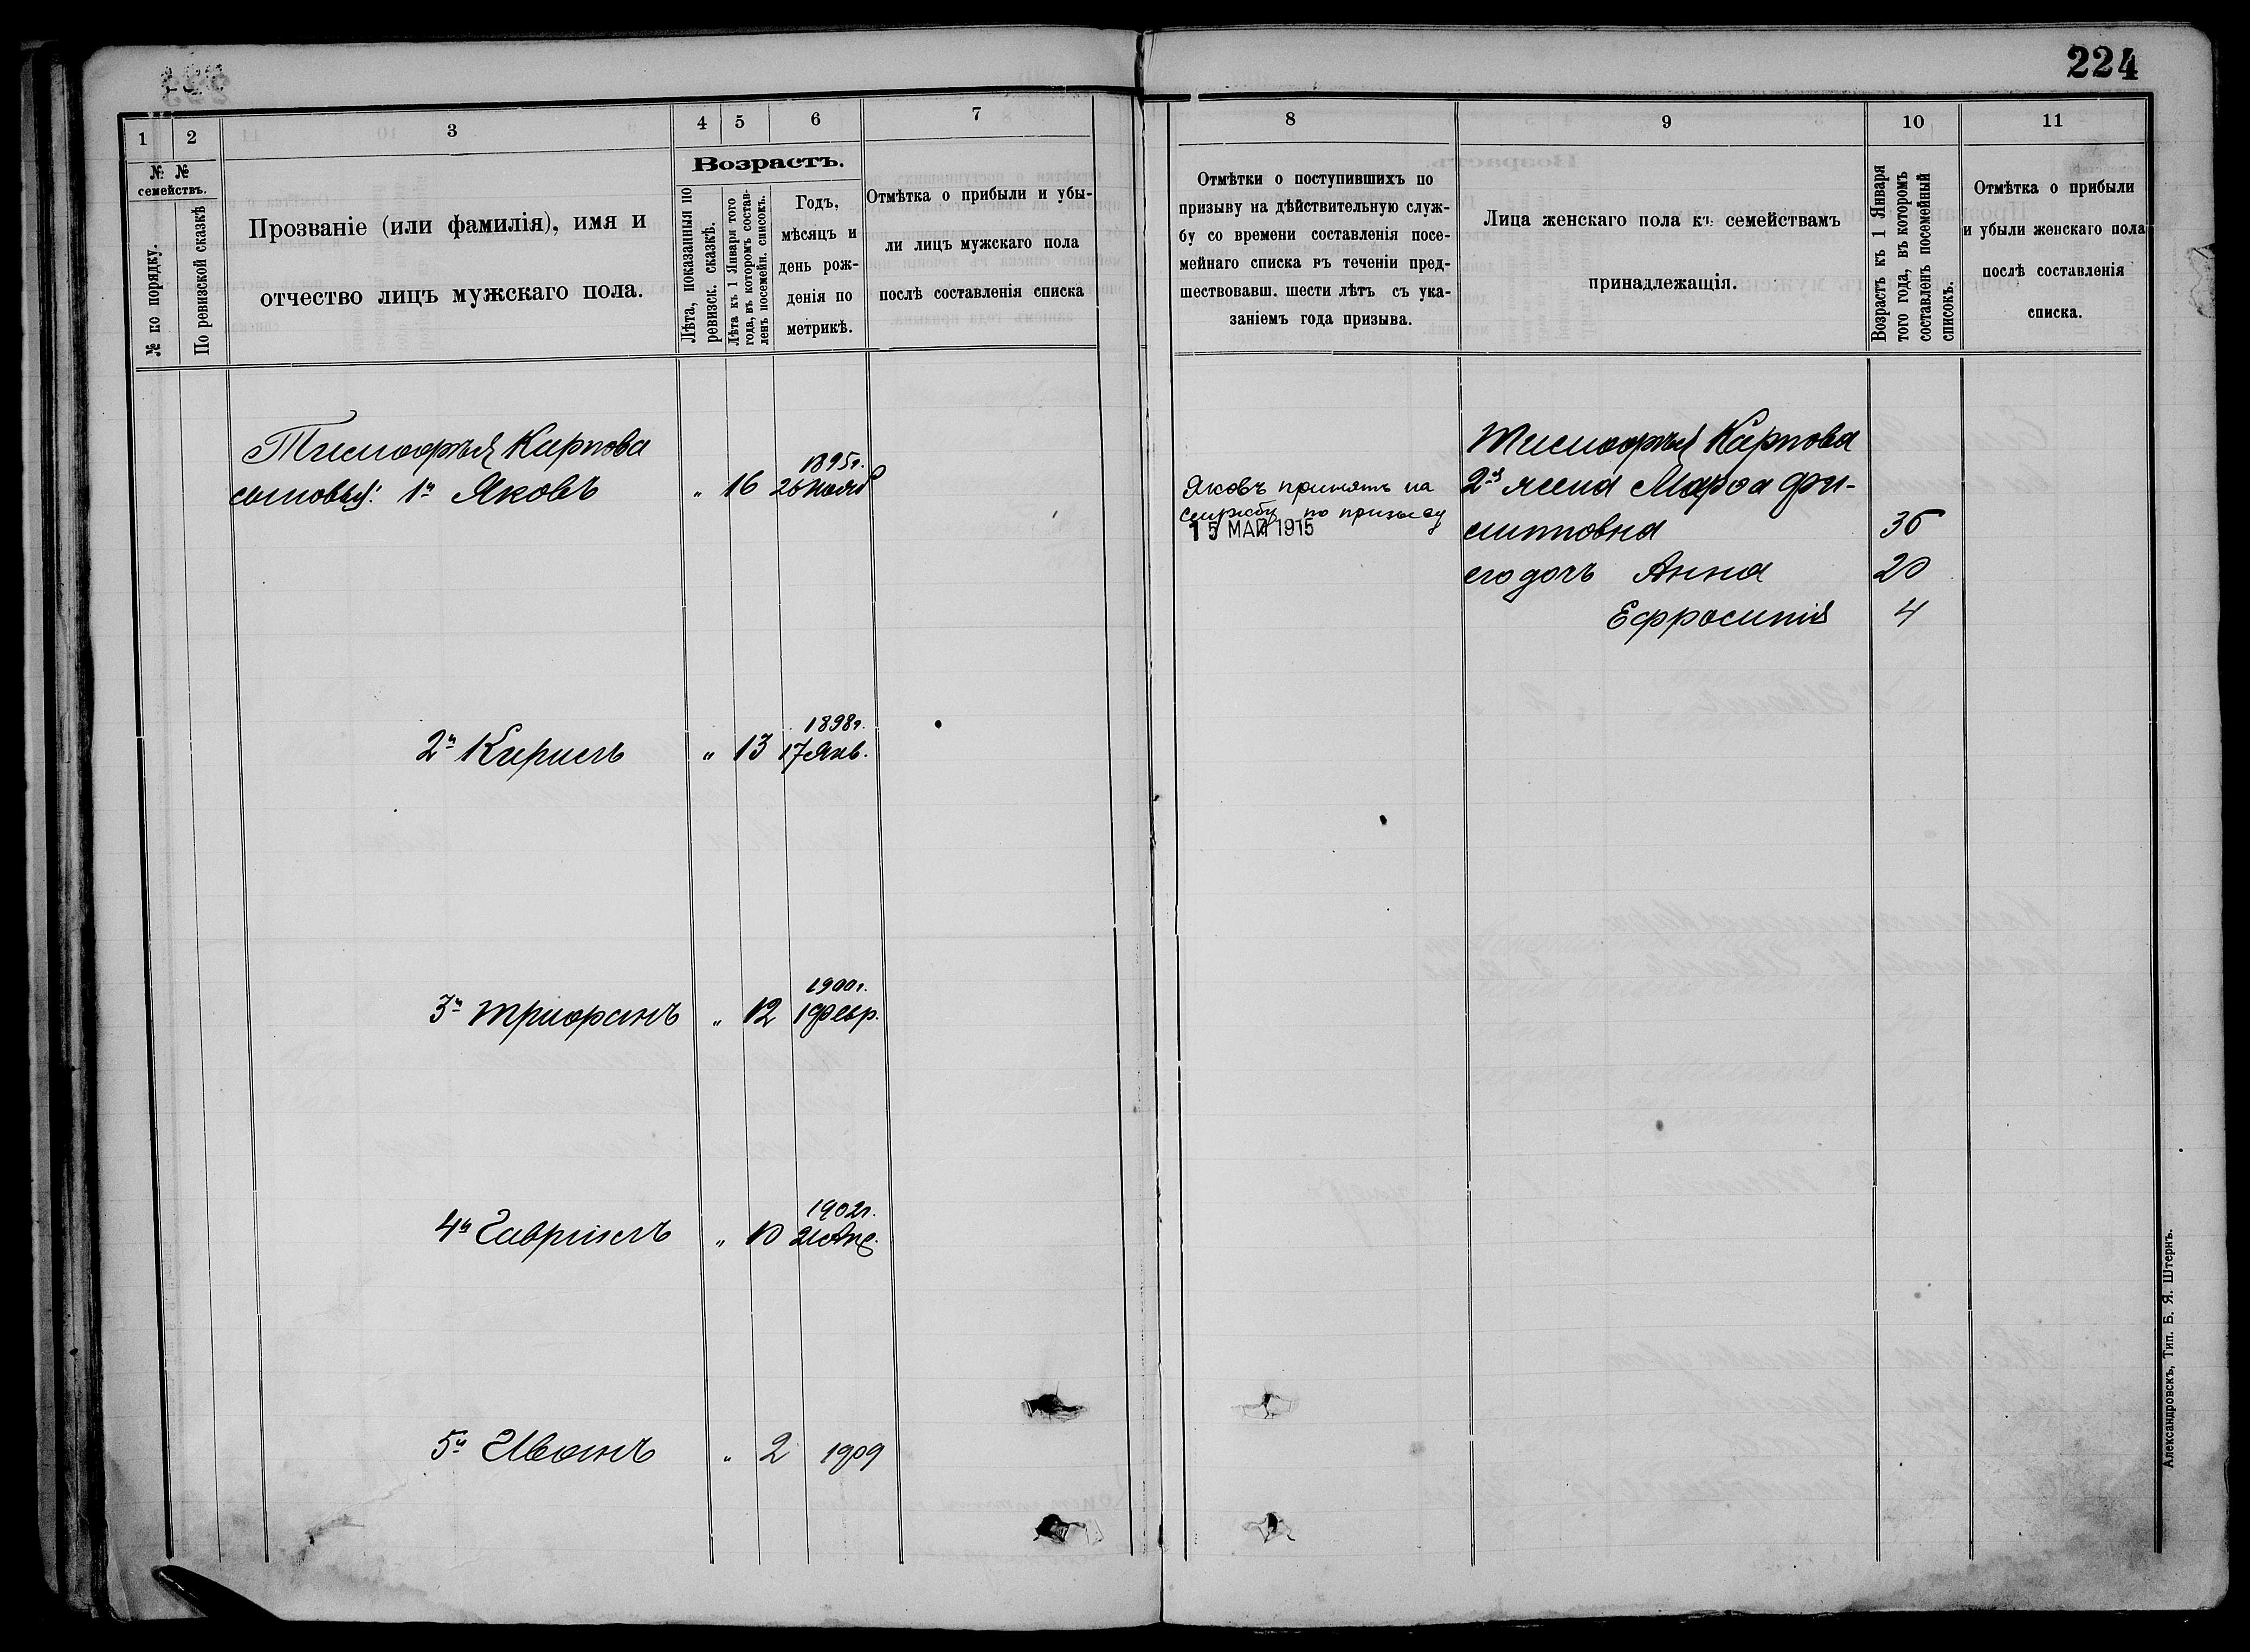 224
1
2
3
4
5
6
7
№ №
семействъ.
№ по порядку.
По ревизской сказкѣ
Прозваніе (или фамилія), имя и
отчество лицъ мужскаго пола.
Возрастъ.
Лѣта, показанныя по
ревизск. сказкѣ.
Лѣта къ 1 Января того
года, въ которомъ состав-
ленъ посемейн. списокъ.
Годъ,
мѣсяцъ и
день рож-
денія по
метрикѣ.
Отмѣтка о прибыли и убы-
ли лицъ мужскаго пола
послѣ составленія списка
Тимофѣя Карпова
1895г.
сыновья: 1й Яковъ " 16 26 Нояб
1898г.
2й Кирилъ " 13 17 Янв.
1900г.
3й Трифонъ " 12 1 Февр.
1902г.
4й Гавріилъ " 10 21 Апр.
5й Иванъ " 2 1909
8
9
10
11
Отмѣтки о поступившихъ по
призыву на дѣйствительную служ-
бу со времени составленія посе-
мейнаго списка въ теченіи пред-
шествовавш. шести лѣтъ съ ука-
заніемъ года призыва.
Лица женскаго пола къ семействамъ
принадлежащія.
Возрастъ къ 1 Января
того года, въ которомъ
составленъ посемейный
списокъ.
Отмѣтка о прибыли
и убыли женскаго пола
послѣ составленія
списка.
Яковъ принятъ на
службу по призыву
15 МАЯ 1915
Тимофѣя Карпова
2я жена Марѳа Фи-
липповна 36
его дочь Анна 20
Ефросинія 4
Александровскъ, Тип. Б. Я. Штернъ.